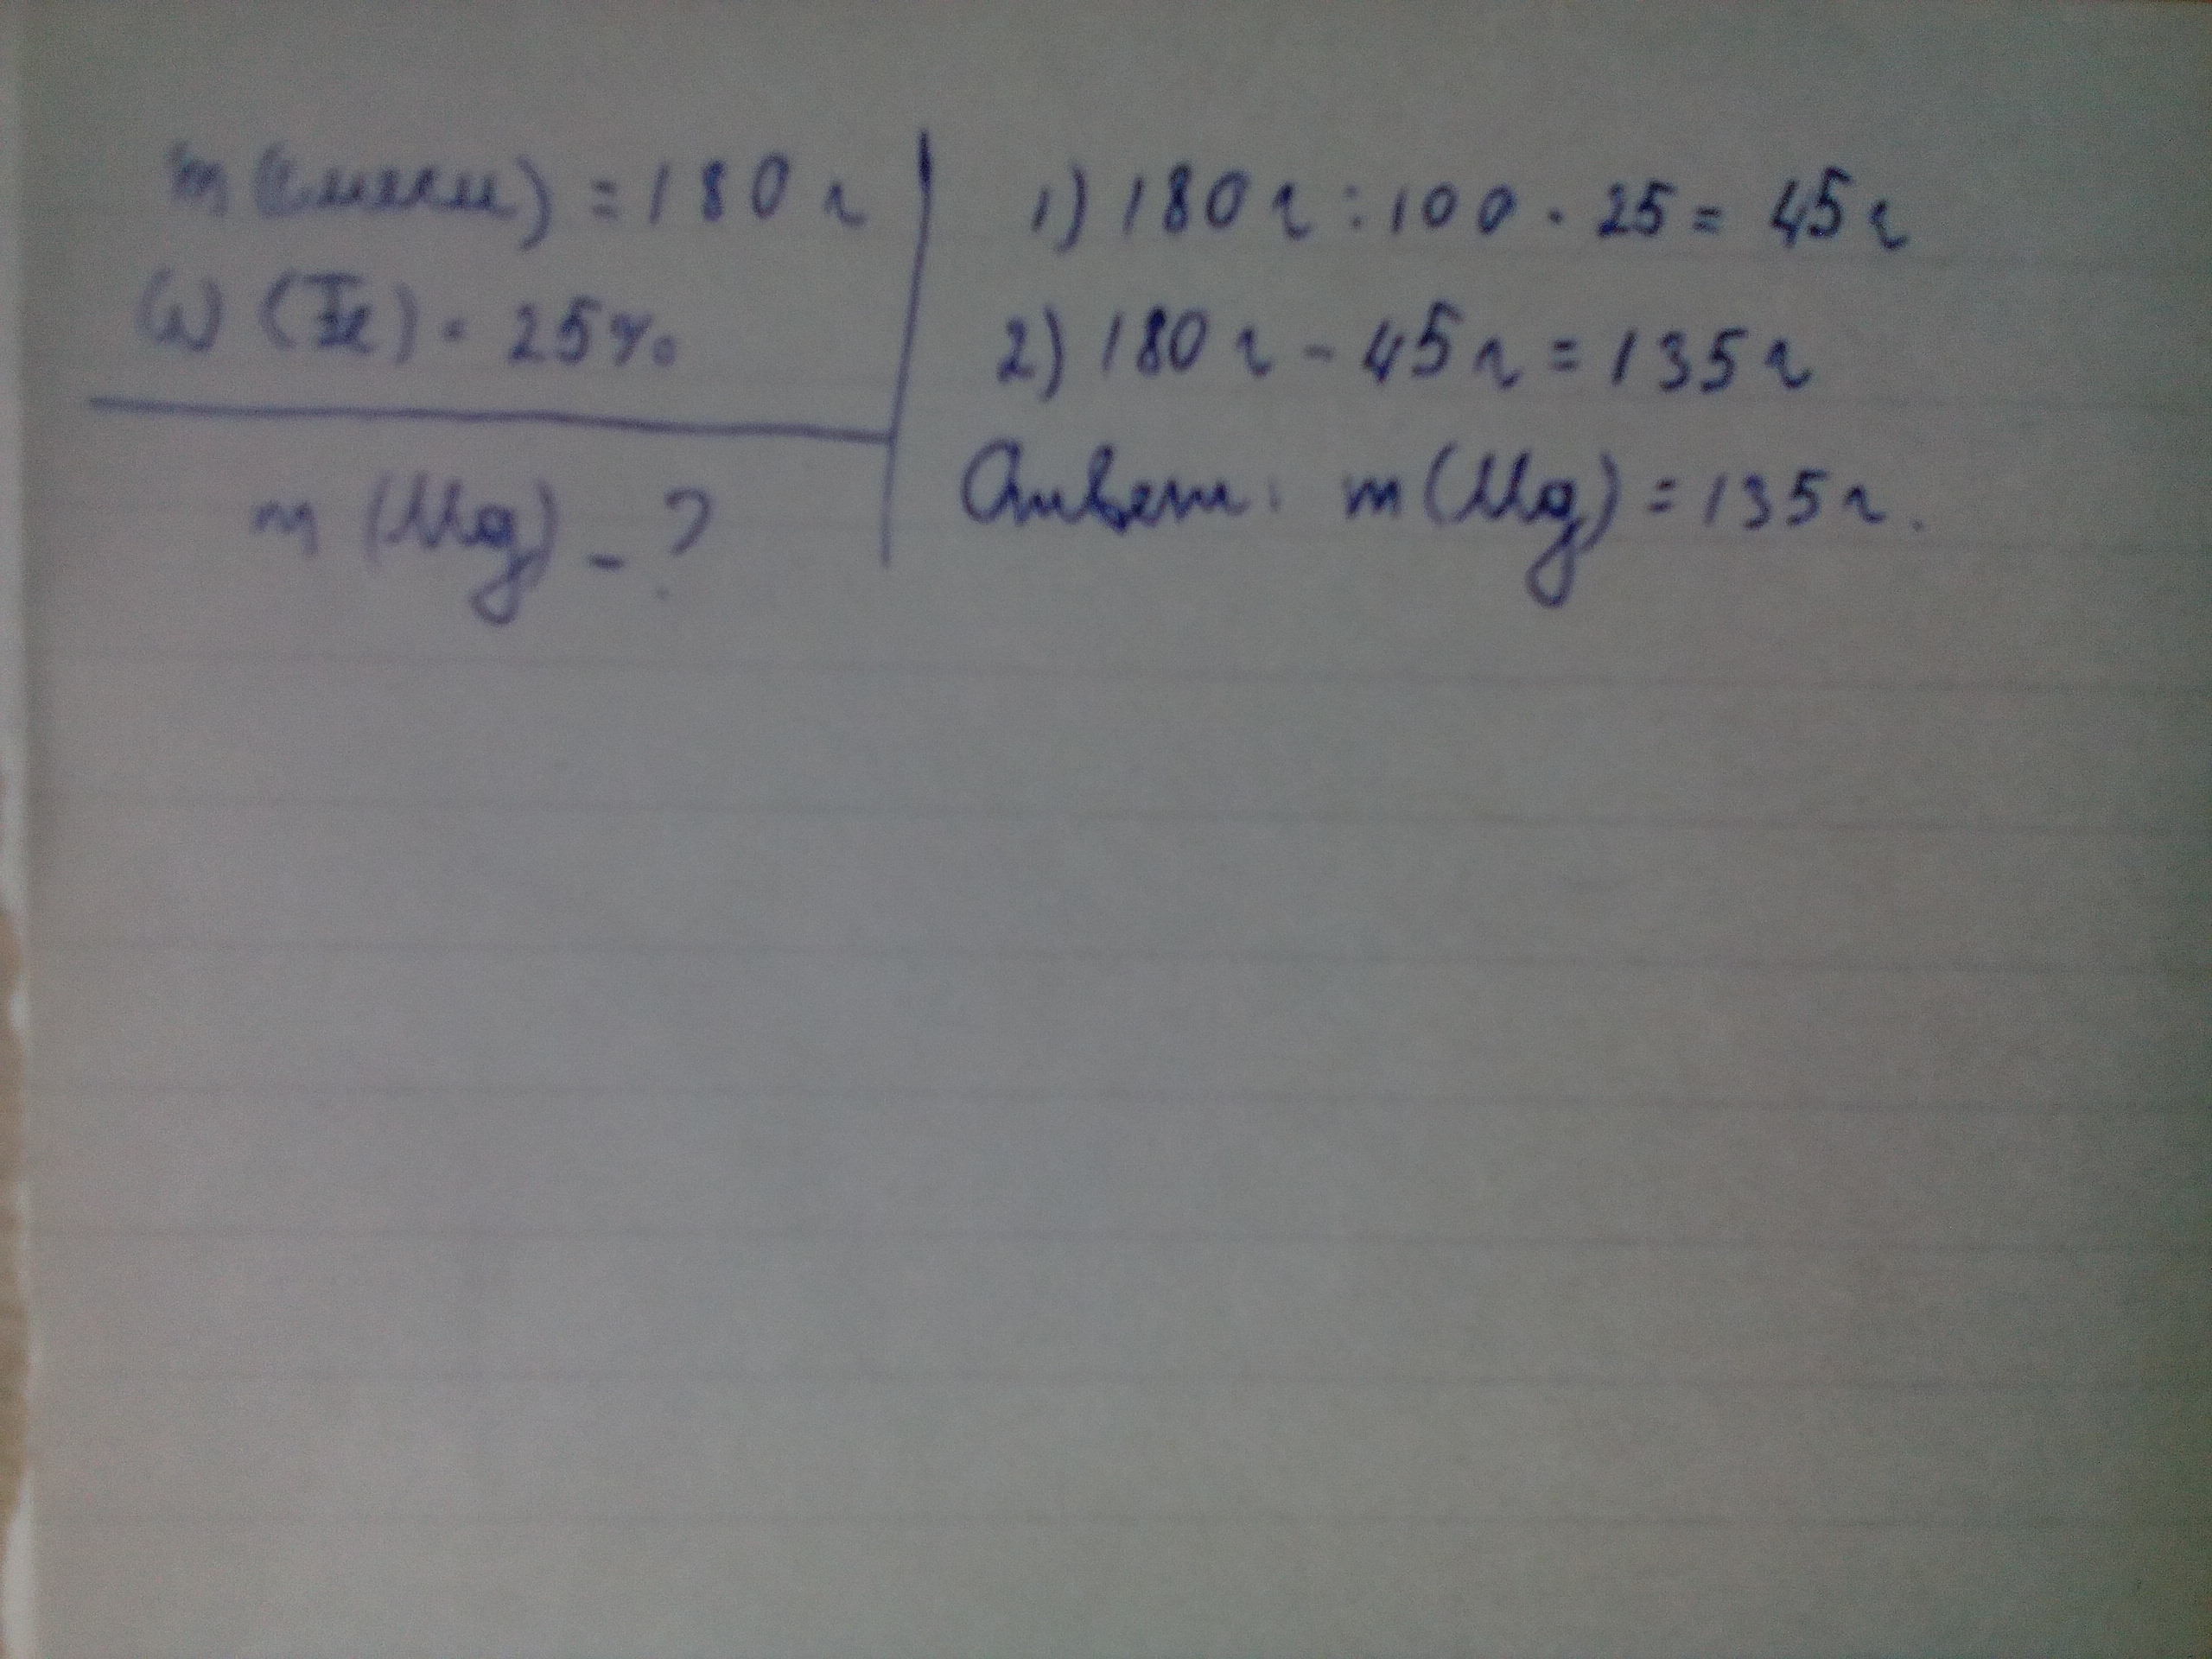 m (смеси) = 180 г
ω (Fe) = 25%
m (Mg) - ?
1) 180 г : 100 · 25 = 45 г
2) 180 г - 45 г = 135 г
Ответ: m (Mg) = 135 г.